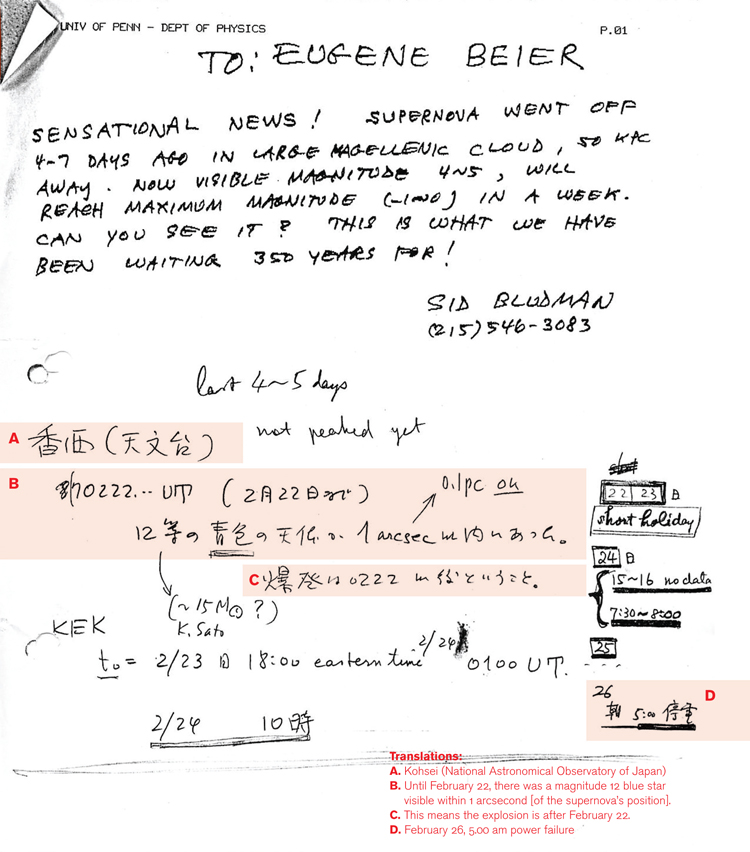 UNIV OF PENN - DEPT OF PHYSICS P.01
TO: EUGENE BEIER
SENSATIONAL NEWS! SUPERNOVA WENT OFF
4-7 DAYS AGO IN LARGE MAGELLENIC CLOUD, 50 KPC
AWAY. NOW VISIBLE MAGNITUDE 4M5, WILL
REACH MAXIMUM MAGNITUDE (-1M0) IN A WEEK.
CAN YOU SEE IT? THIS IS WHAT WE HAVE
BEEN WAITING 350 YEARS FOR!
SID BLUDMAN
(215)546-3083
last 4~5 days
not peaked yet
A 香西(天文台)
B
0222... UT (2月22日まで)
0.1pc OK
12等の青色の天体が 1 arcsec以内にあった。
C 爆発は0222以後ということ。
(~15M⊙?)
K. Sato
KEK
t₀ = 2/23日 18:00 eastern time 2/24 0100 UT.
2/24 10時
22 23 日
short holiday
24日
15~16 no data
7:30~8:00
25
26
朝 5:00 停電
D
Translations:
A. Kohsei (National Astronomical Observatory of Japan)
B. Until February 22, there was a magnitude 12 blue star
visible within 1 arcsecond [of the supernova's position].
C. This means the explosion is after February 22.
D. February 26, 5.00 am power failure